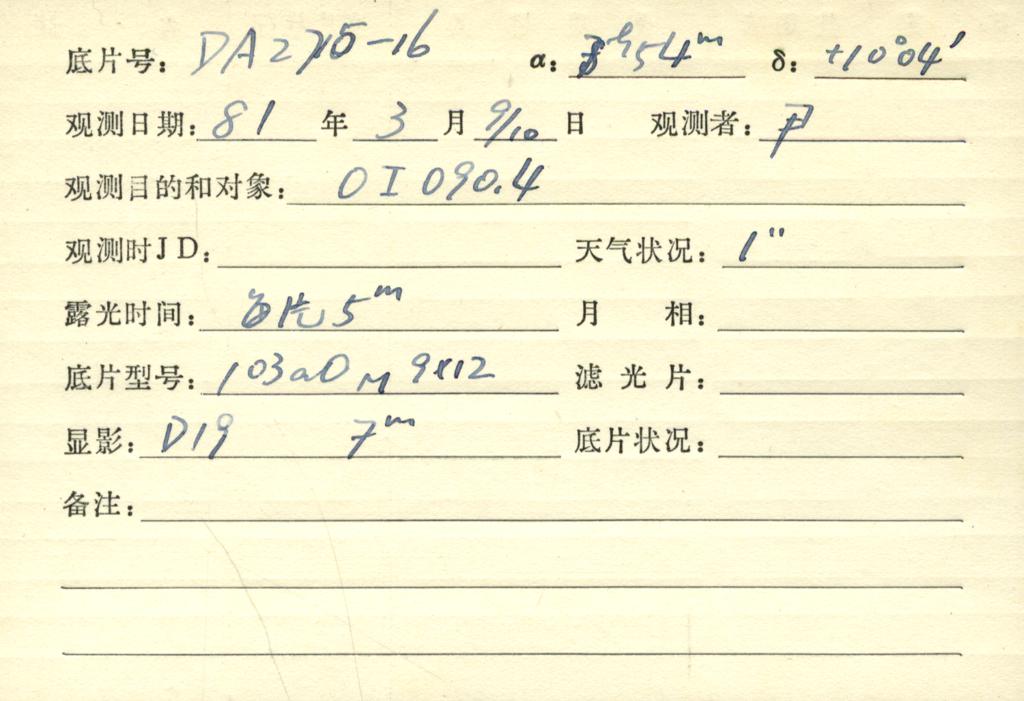 底片号: DA2715-16 α: 8ʰ54ᵐ δ: +10°04′
观测日期: 81 年 3 月 9/10 日 观测者: 尹
观测目的和对象: OI 090.4
观测时JD: 天气状况: 1″
露光时间: 每片 5ᵐ 月 相:
底片型号: 103aO 9×12 滤 光 片:
显影: D19 7ᵐ 底片状况:
备注: